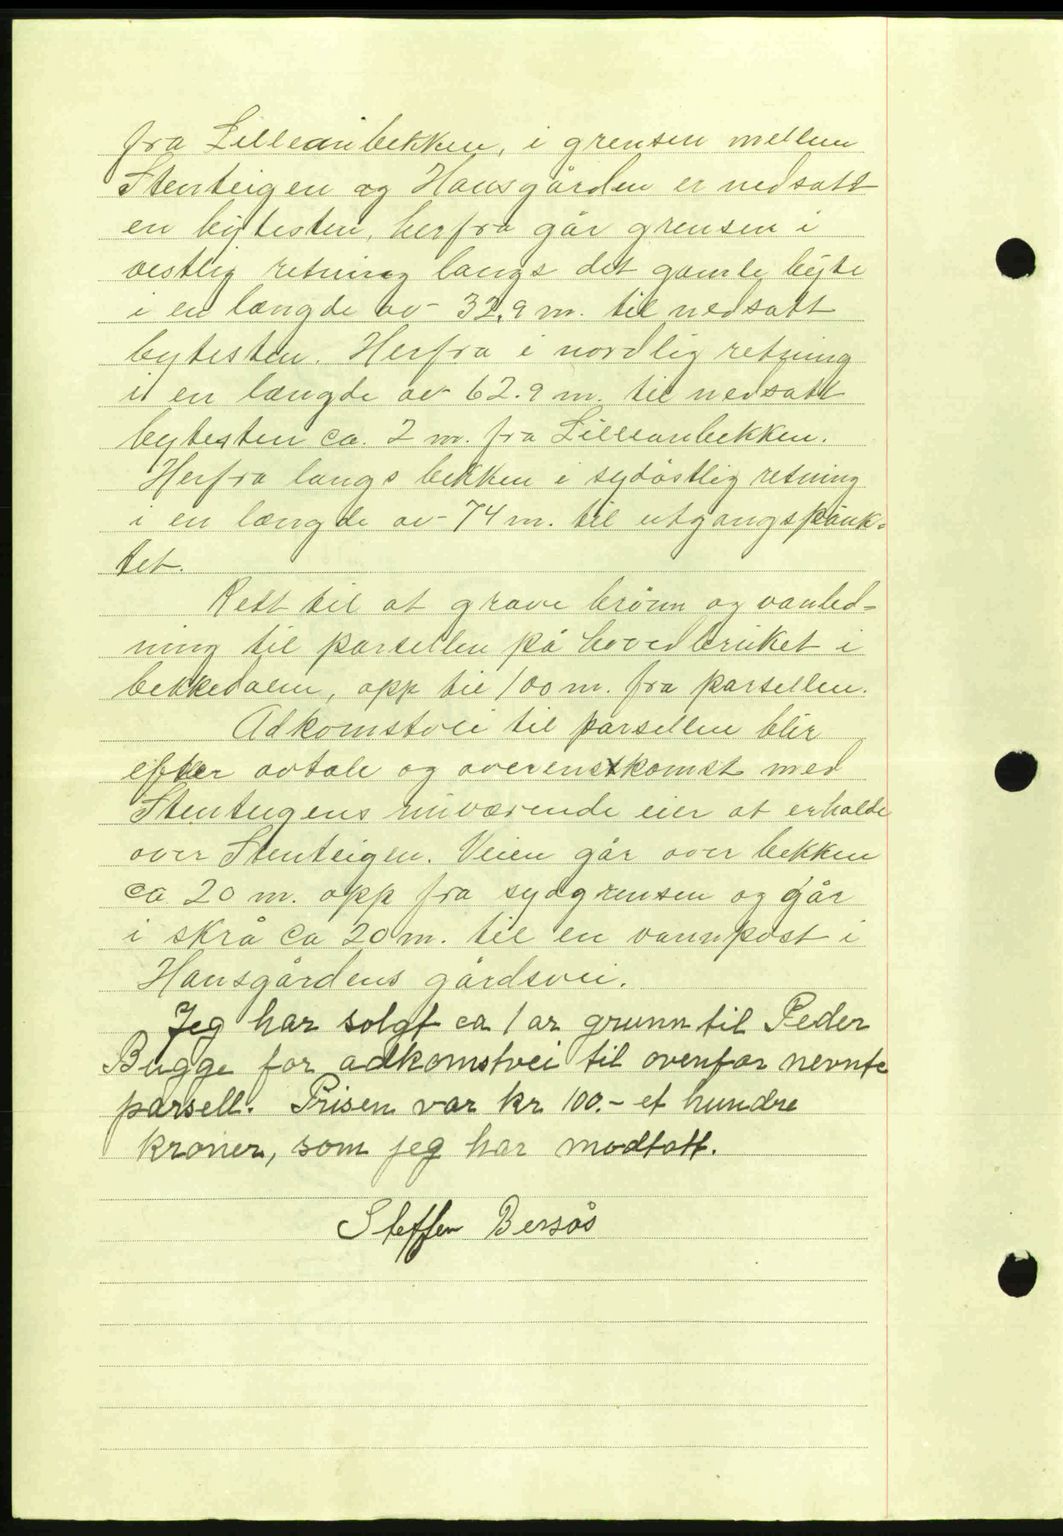 fra Lilleånbekken, i grensen mellem
Stenteigen og Hansgården er nedsatt
en bytesten, herfra går grensen i
vestlig retning langs det gamle byte
i en længde av 32.9 m. til nedsatt
bytesten. Herfra i nordlig retning
i en længde av 62.9 m. til nedsatt
bytesten ca. 2 m. fra Lilleånbekken.
Herfra langs bekken i sydöstlig retning
i en længde av 74 m. til utgangspünk-
tet.
Rett til at grave brönn og vanled-
ning til parsellen på hovedbrüket i
bekkedalen, opp til 100 m. fra parsellen.
Adkomstvei til parsellen blir
efter avtale og overenskomst med
Stenteigens nuværende eier at erholde
over Stenteigen. Veien går over bekken
ca 20 m. opp fra sydgrensen og går
i skrå ca 20 m. til en vannpost i
Hansgårdens gårdsvei.
Jeg har solgt ca 1 ar grunn til Peder
Bugge for adkomstvei til ovenfor nevnte
parsell. Prisen var kr 100.- et hundre
kroner, som jeg har modtatt.
Steffen Bersås